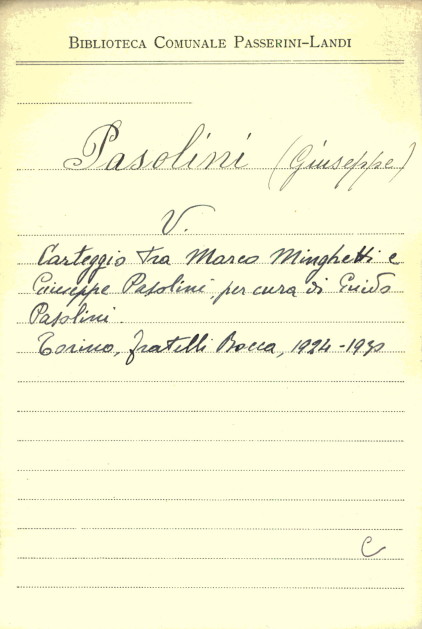 BIBLIOTECA COMUNALE PASSERINI-LANDI
Pasolini (Giuseppe)
V.
Carteggio tra Marco Minghetti e
Giuseppe Pasolini per cura di Guido
Pasolini.
Torino, fratelli Bocca, 1924-1930
C